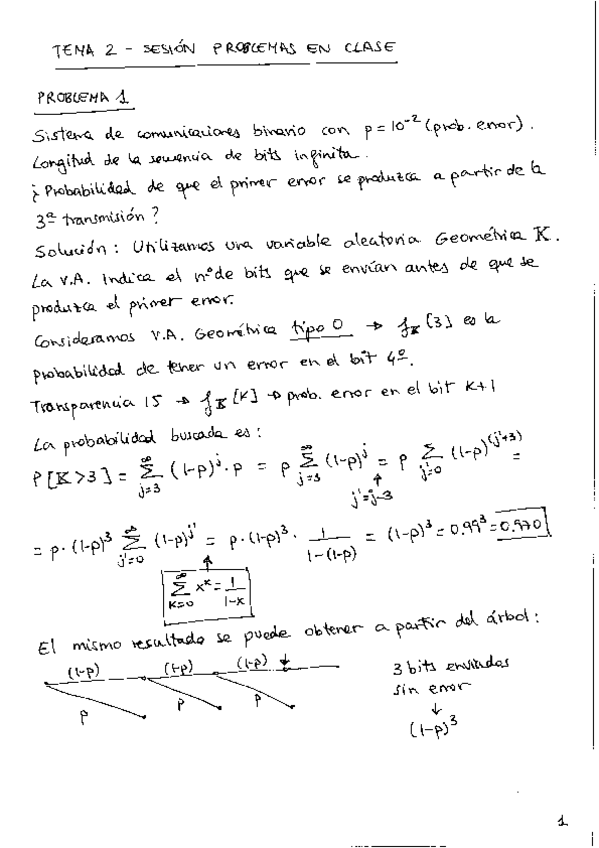 TEMA 2 - SESIÓN PROBLEMAS EN CLASE
PROBLEMA 1
Sistema de comunicaciones binario con p = 10^-2 (prob. error).
Longitud de la secuencia de bits infinita.
¿Probabilidad de que el primer error se produzca a partir de la
3ª transmisión?
Solución: Utilizamos una variable aleatoria Geométrica K.
La V.A. indica el nº de bits que se envían antes de que se
produzca el primer error.
Consideramos V.A. Geométrica tipo 0 → f_K[3] es la
probabilidad de tener un error en el bit 4º.
Transparencia 15 → f_K[K] → prob. error en el bit K+1
La probabilidad buscada es:
P[K>3] = ∑_{j=3}^{∞} (1-p)^j · p = p ∑_{j=3}^{∞} (1-p)^j = p ∑_{j'=0} (1-p)^(j'+3) =
j'=j-3
= p · (1-p)^3 ∑_{j'=0}^{∞} (1-p)^j' = p · (1-p)^3 · 1/(1-(1-p)) = (1-p)^3 = 0.99^3 = 0.970
∑_{K=0}^{∞} x^K = 1/(1-x)
El mismo resultado se puede obtener a partir del árbol:
(1-p) (1-p) (1-p)
p p p
3 bits enviados
sin error
↓
(1-p)^3
1